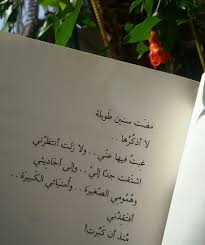 مضت سنين طويلة
لا أذكرها ..
غبت فيها عني .. ولا زلت أنتظرني
اشتقت جدًا إليّ .. وإلى أحاديثي
وهمومي الصغيرة .. وأمنياتي الكبيرة ..
أفتقدني
منذ أن كبرت!